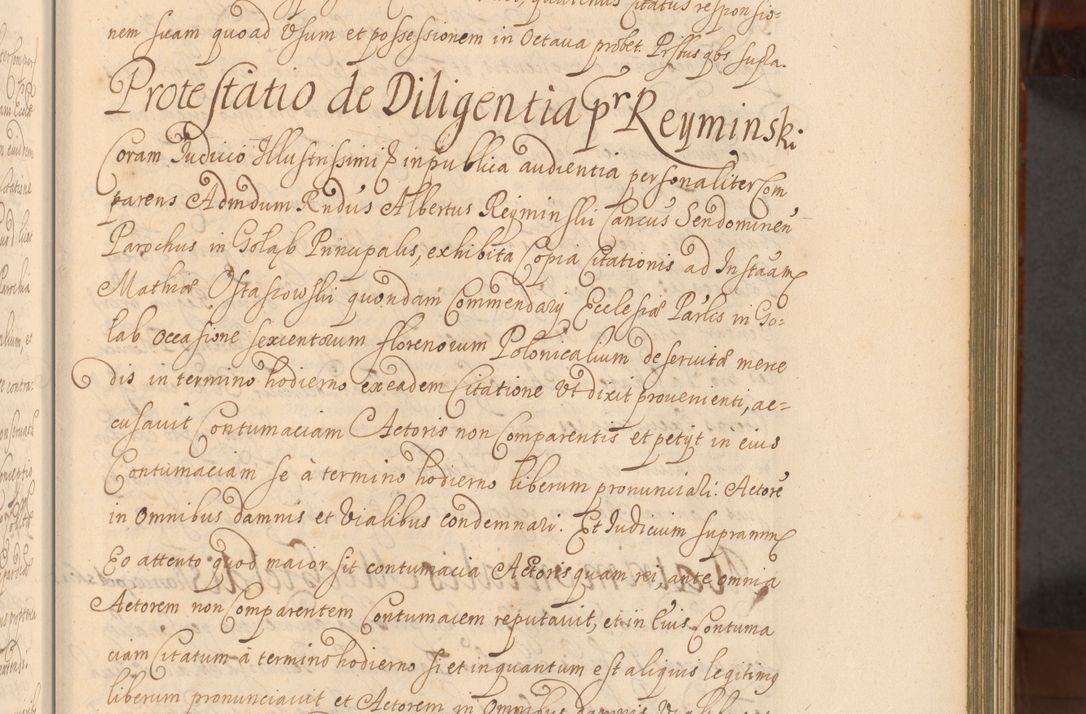 quatenus Citatus responsio=
nem suam quoad Usum et possessionem in Octava probet. Prsttus qbs supra.
Protestatio de Diligentia pr Reyminski
Coram Iudicio Illustrissimi & in publica audientia personaliter Com
parens Admdum Rndus Albertus Reyminski Cancus Sendominen
Parochus in Gołąb Principalis, exhibita Copia Citationis ad Instaam
Mathiæ Ostaszowski quondam Commendarij Ecclesiæ Parlis in Go=
łab occasione sexcentorum florenorum Polonicalium deservitæ merce
dis in termino hodierno ex eadem Citatione Ut dixit provenienti, ac=
cusavit Contumaciam Actoris non Comparentis et petyt in eius
Contumaciam se à termino hodierno liberum pronunciari. Actore
in Omnibus damnis et Vialibus condemnari. Et Iudicium supramm
Eo attento quod maior sit contumacia Actoris quam rei, ante omnia
Actorem non Comparentem Contumacem reputavit, et in Eius Contuma
ciam Citatum à termino hodierno si et in quantum est aliquis legitimus
liberum pronunciavit et Actorem in Omnibus damnis